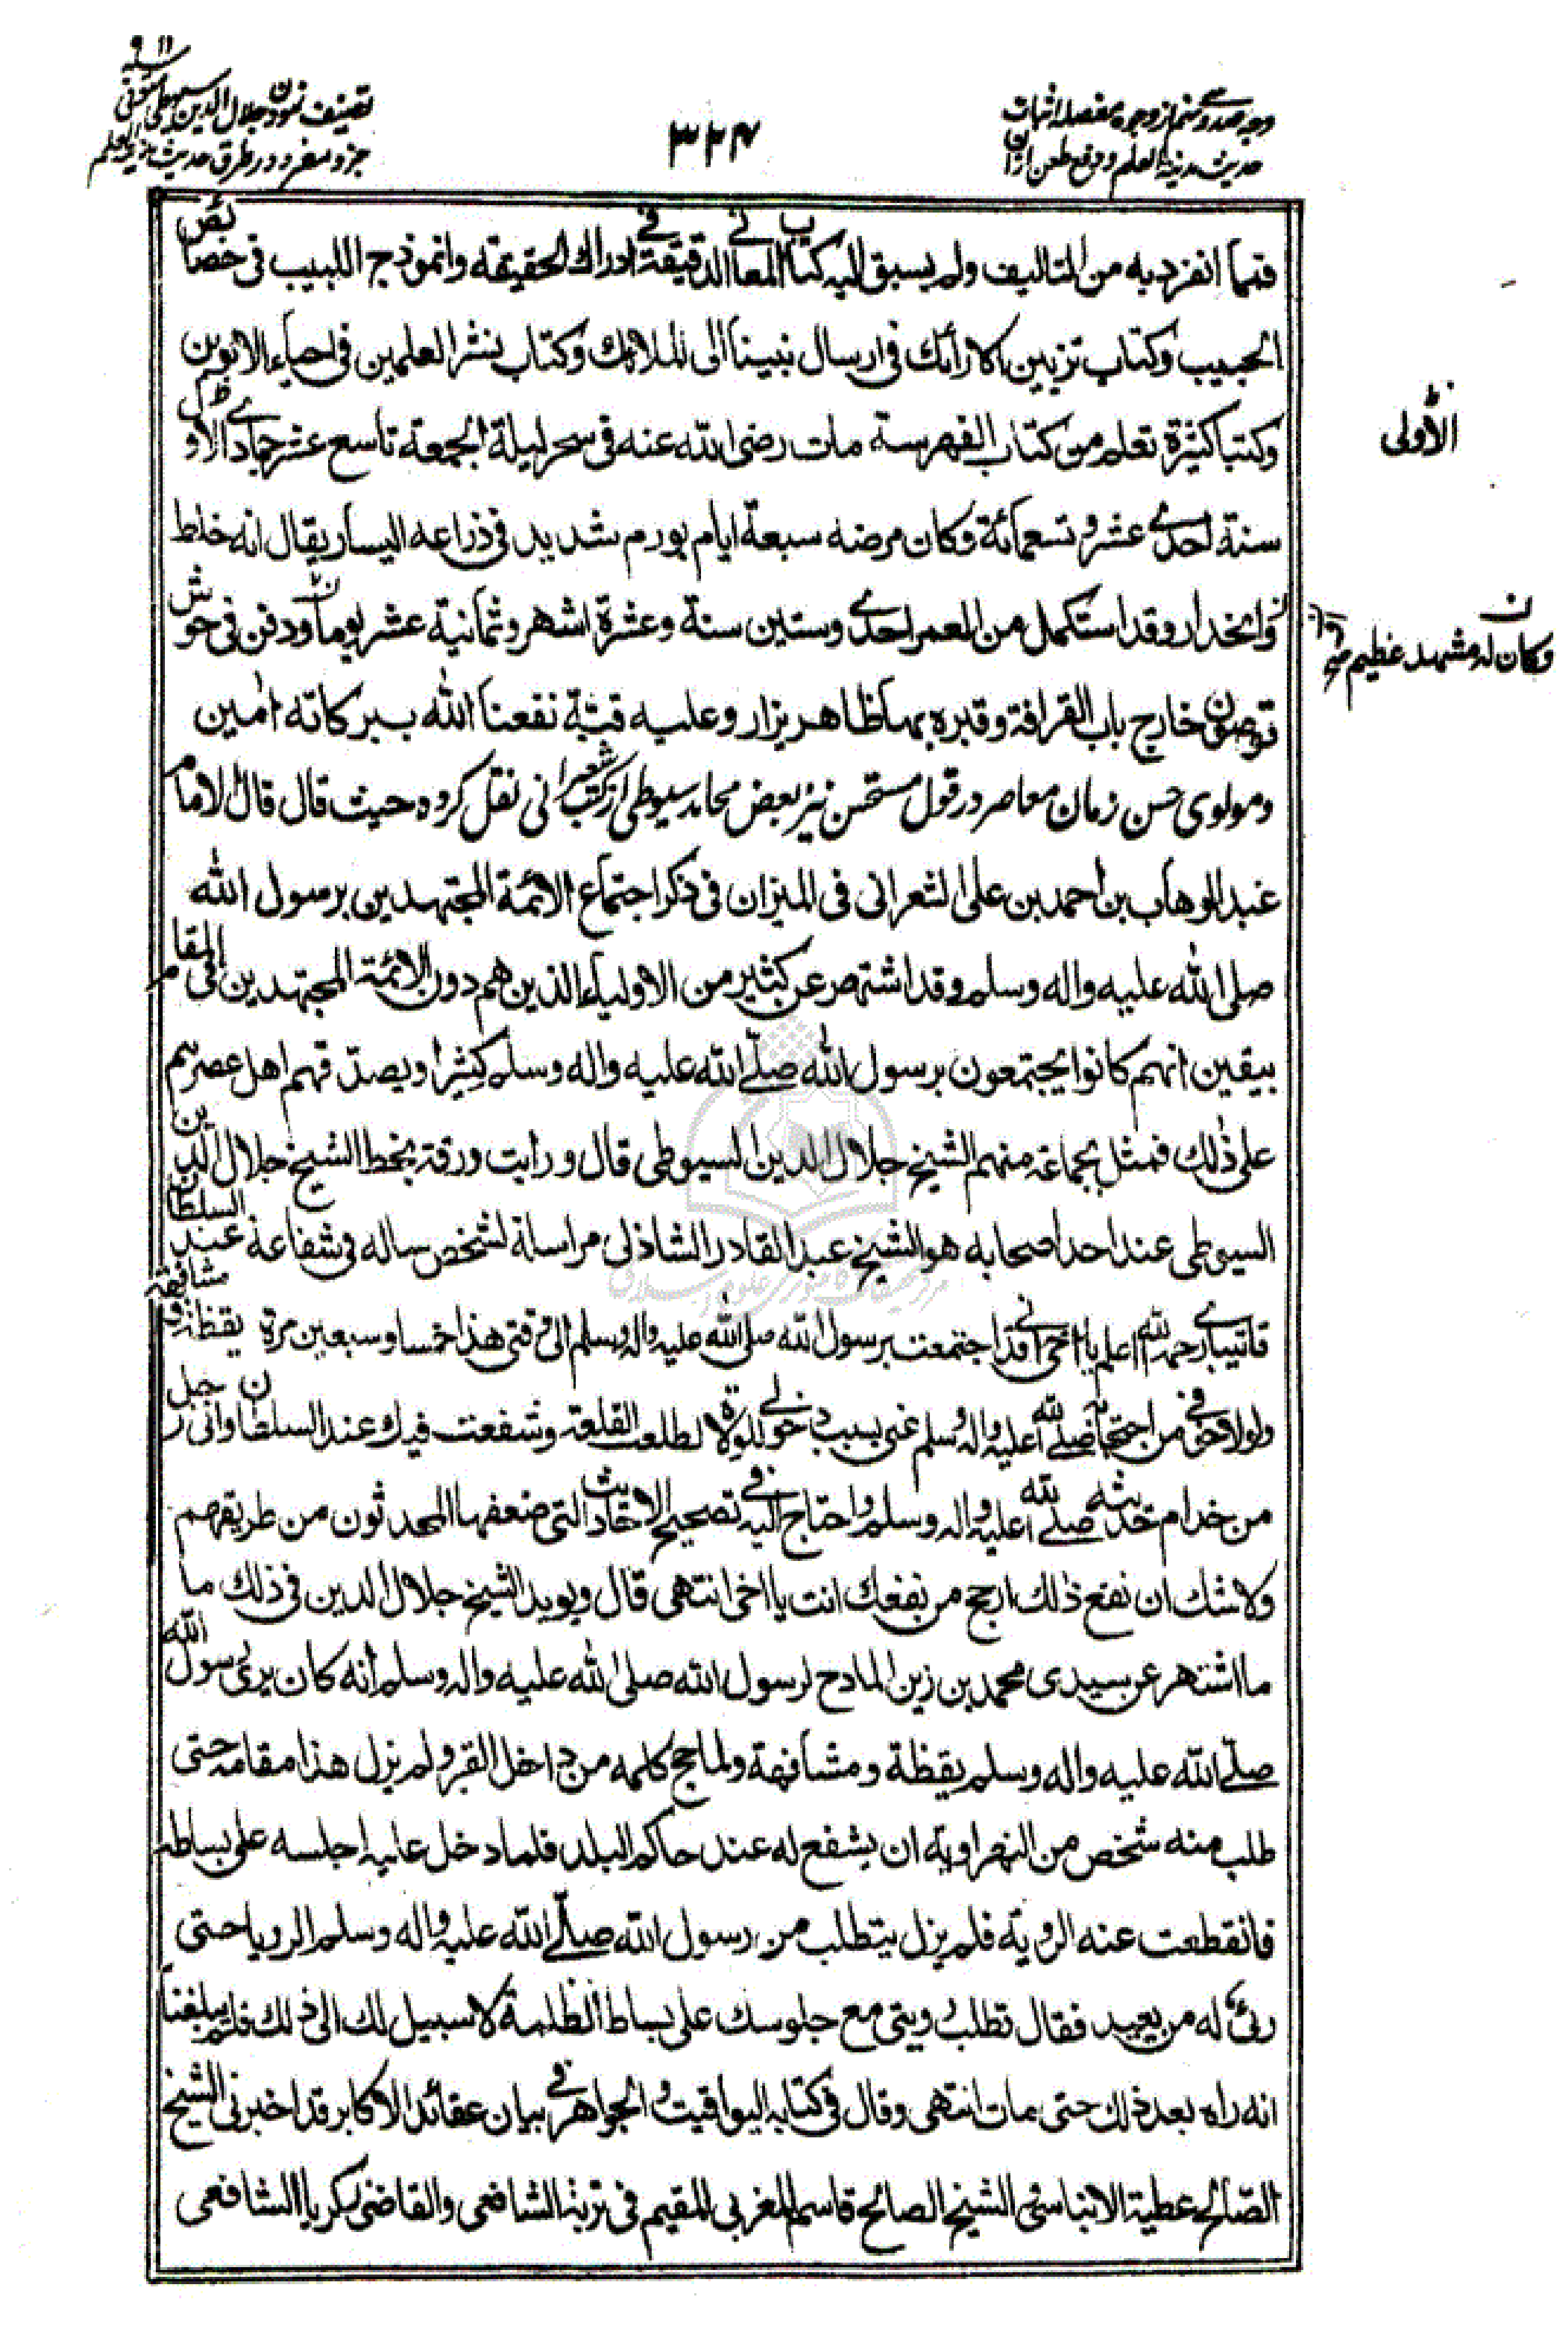 وجه صد و ششم از وجوه مفصله اثبات
حدیث مدینة العلم و دفع طعن ازان
۳۲۴
تصنیف نمودن جلال الدین سیوطی متوفی
سنه ۹۱۱
جزو مفرد در طرق حدیث مدینة العلم
فمما انفرد به من التاليف ولم يسبق اليه كتاب المعاني الدقيقة في ادراك الحقيقة وانموذج اللبيب في خصائص
الحبيب وكتاب تزيين الارائك في ارسال نبينا الى الملائك وكتاب نشر العلمين في احياء الابوين
وكتبا كثيرة تعلم من كتاب الفهرسة مات رضى الله عنه في سحر ليلة الجمعة تاسع عشر جمادى الاولى
الاولى
سنة احدى عشر وتسعمائة وكان مرضه سبعة ايام بورم شديد في ذراعه اليسار يقال انه خلط
وانحدار وقد استكمل من العمر احدى وستين سنة وعشرة اشهر وثمانية عشر يوما ودفن في حوش
وكان له مشهد عظيم
قوصون خارج باب القرافة وقبره بها ظاهر يزار وعليه قبة نفعنا الله ببركاته امين
ومولوی حسن زمان معاصر در قول مستحسن نیز بعض محامد سیوطی از کتب شعرانی نقل کرده حیث قال قال الامام
عبد الوهاب بن احمد بن على الشعرانى فى الميزان فى ذكر اجتماع الائمة المجتهدين برسول الله
صلى الله عليه واله وسلم وقد اشتهر عن كثير من الاولياء الذين هم دون الائمة المجتهدين فى المقام
بيقين انهم كانوا يجتمعون برسول الله صلى الله عليه واله وسلم كثيرا ويصدقهم اهل عصرهم
على ذلك فمثل بجماعة منهم الشيخ جلال الدين السيوطى قال ورأيت ورقة بخط الشيخ جلال الدين
السيوطى عند احد اصحابه هو الشيخ عبد القادر الشاذلى مراسلة لشخص ساله فى شفاعة عند السلطان
قاتيباى رحمه الله اعلم يا اخى اننى قد اجتمعت برسول الله صلى الله عليه واله وسلم الى وقتى هذا خمسا وسبعين مرة يقظة ومشافهة
ولولا خوفى من احتجابه صلى الله عليه واله وسلم عنى بسبب دخولى للولاة لطلعت القلعة وشفعت فيك عند السلطان وانى رجل
من خدام حديثه صلى الله عليه واله وسلم واحتاج اليه فى تصحيح الاحاديث التى ضعفها المحدثون من طريقهم
ولا شك ان نفع ذلك ارجح من نفعك انت يا اخى انتهى قال ويويد الشيخ جلال الدين فى ذلك ما
ما اشتهر عن سيدى محمد بن زين المادح لرسول الله صلى الله عليه واله وسلم انه كان يرى رسول الله
صلى الله عليه واله وسلم يقظة ومشافهة ولما حج كلمه من داخل القبر ولم يزل هذا مقامه حتى
طلب منه شخص من النهراوية ان يشفع له عند حاكم البلد فلما دخل عليه اجلسه على بساطه
فانقطعت عنه الروية فلم يزل يتطلب من رسول الله صلى الله عليه واله وسلم الرويا حتى
رئى له من بعيد فقال تطلب رويتى مع جلوسك على بساط الظلمة لا سبيل لك الى ذلك فلم يبلغنا
انه راه بعد ذلك حتى مات انتهى وقال فى كتابه اليواقيت والجواهر فى بيان عقائد الاكابر قد اخبرنى الشيخ
الصالح عطية الابناسى والشيخ الصالح قاسم المغربى المقيم فى تربة الشافعى والقاضى زكريا الشافعى